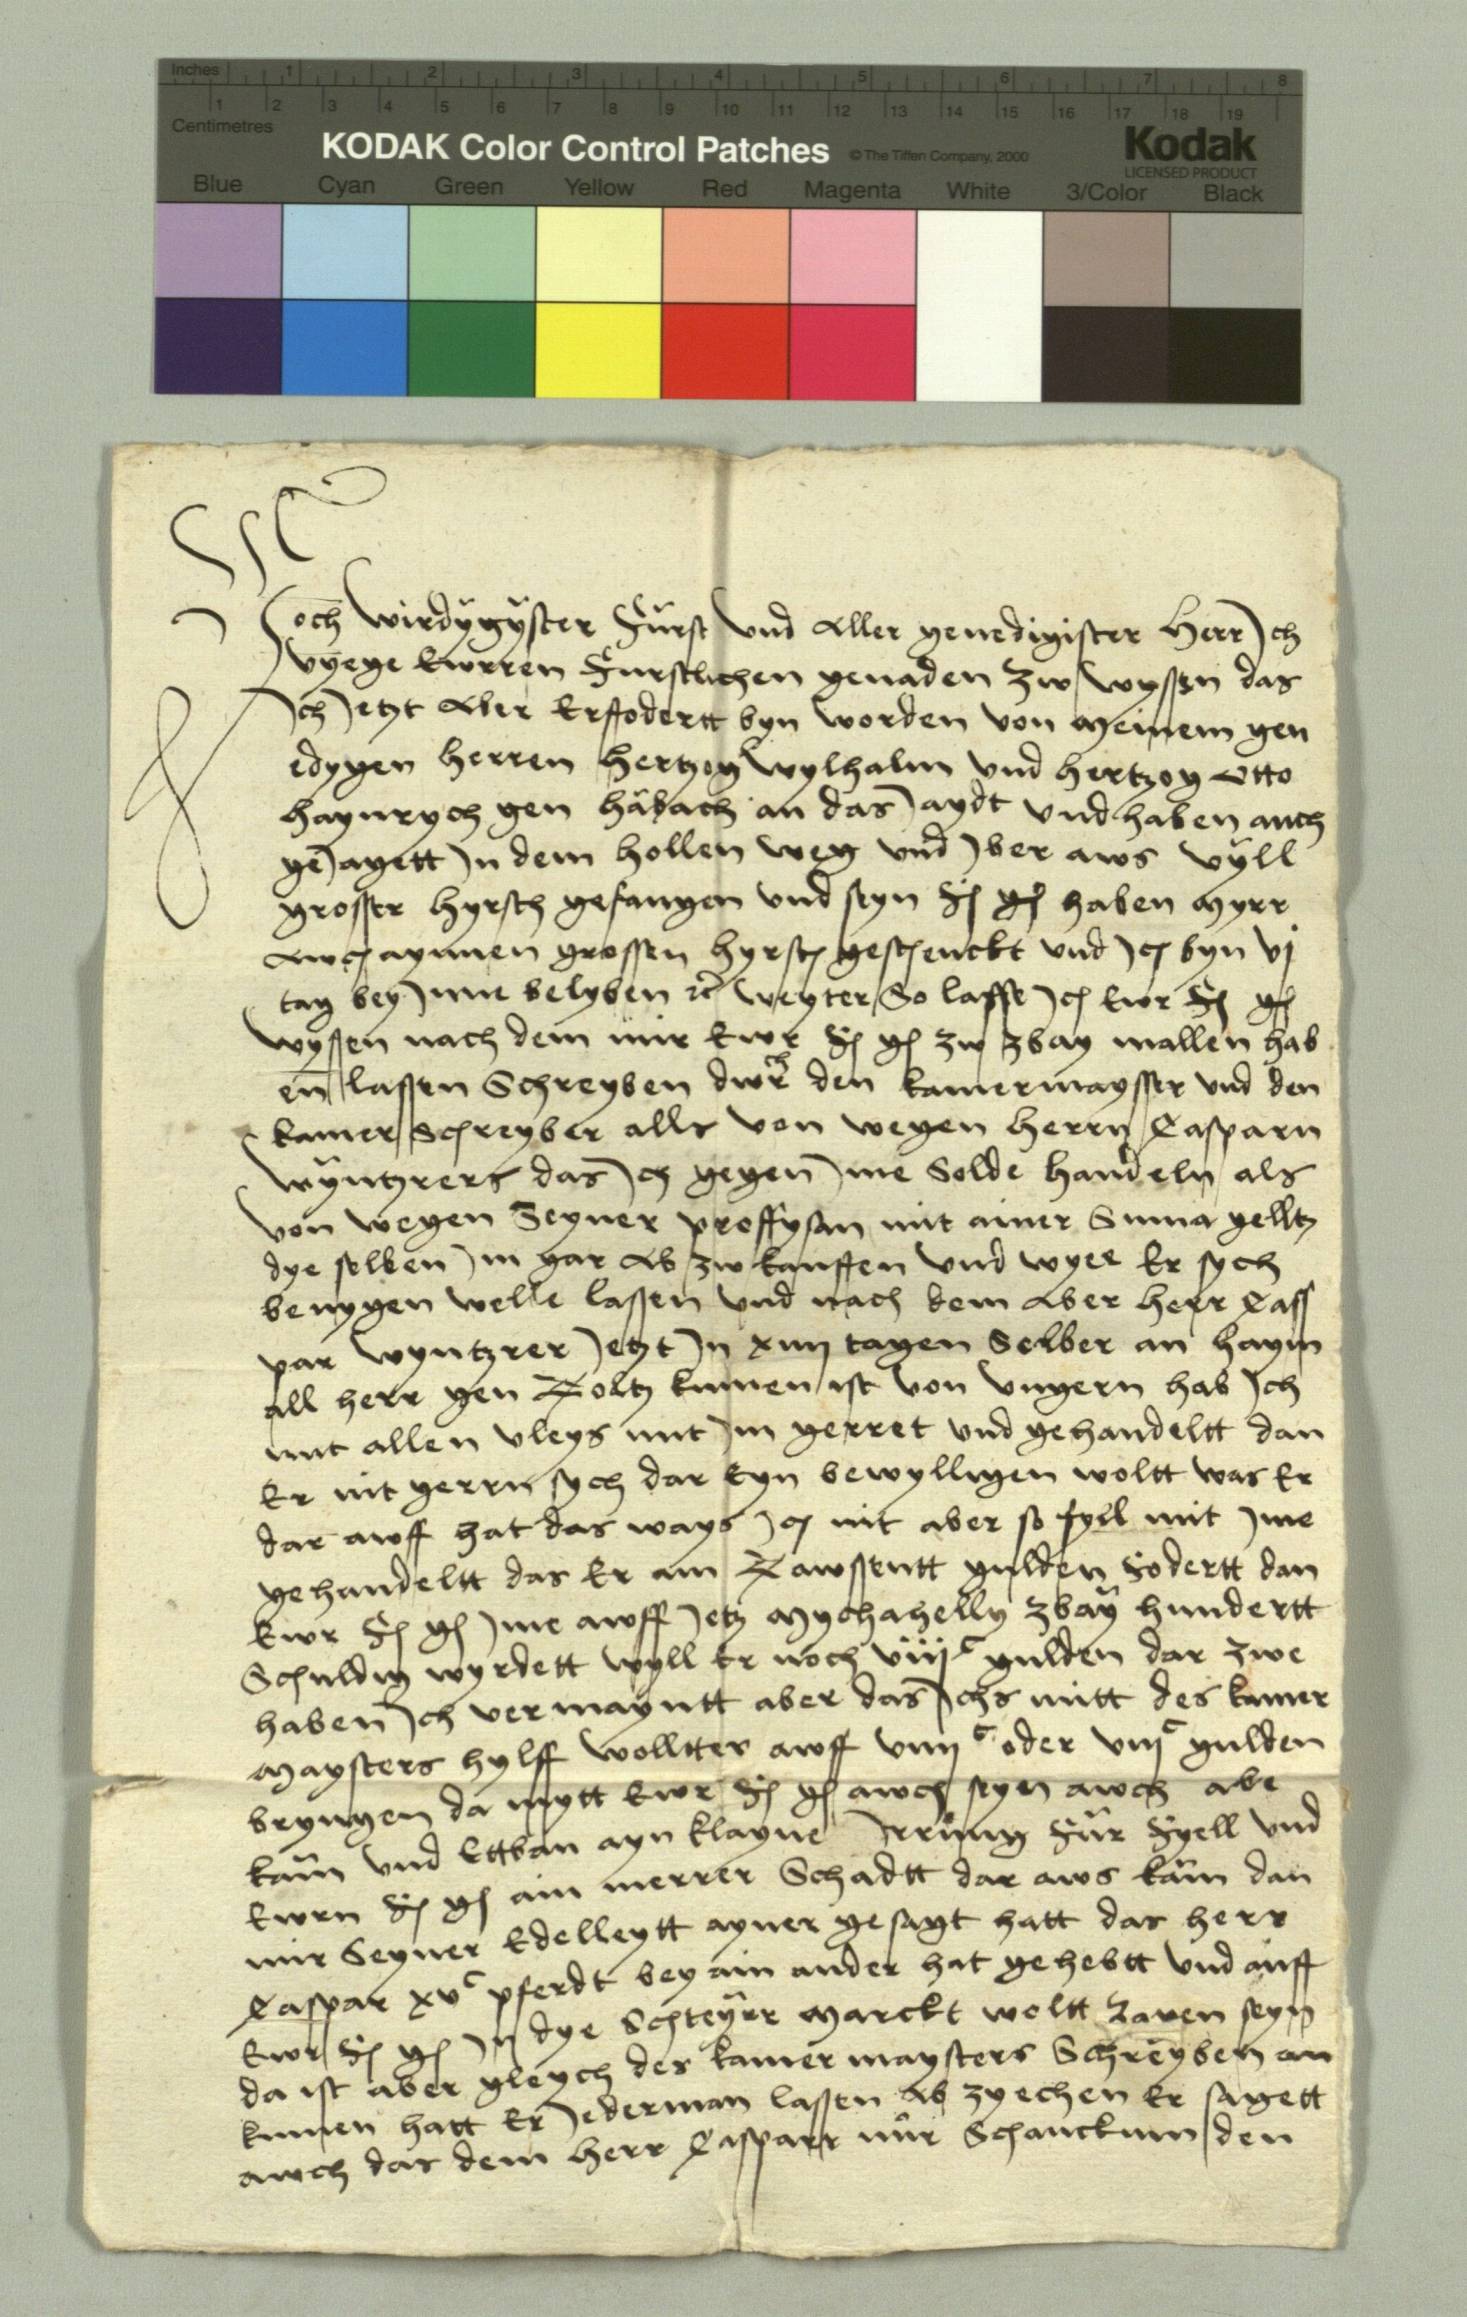 Inches 1 2 3 4 5 6 7 8
1 2 3 4 5 6 7 8 9 10 11 12 13 14 15 16 17 18 19
Centimetres
KODAK Color Control Patches © The Tiffen Company, 2000 Kodak
LICENSED PRODUCT
Blue Cyan Green Yellow Red Magenta White 3/Color Black
Hoch wirdÿgÿster Fürst Und Aller genedigister Herr Ich
vyege Ewrren Furstlichen genaden zw wyssen das
Ich Ietzt Aber Erffodertt byn worden von meinem gen
edygen herren hertzog wylhalm und hertzog Otto
haynrych gen häbach an das Iaydt und haben auch
geIagett In dem hollen weg und Iber aws vÿll
grosser hyrsch gefangen und seyn F G haben myrr
Awch aynnen grossen hyrsch geschenckt und Ich byn vj
tag bey Inne belyben etc weyter So lasse Ich Ewr F G
wyssen nach dem mir Ewr F G zw zbay mallen hab
en lassen Schreyben dwrch den kamermayster und den
kamer Schreyber alls von wegen herrn Casparn
wÿntzrers das Ich gegen Ime Solde handeln als
von wegen Seyner proffysan mit ainer Suma gelltz
dye selben Im gar Ab zw kauffen und wyee Er sych
benygen welle lassen und nach dem Aber herr Cass
par wyntzrer Ietzt In xiiij tagen Selber an haym
all herr gen Tolltz kumen ist von Ungern hab Ich
mit allen vleys mit Im gerret und gehandeltt dan
Er nit gerrn sych dar Eyn bewylligen woltt was Er
dar awff hat das ways Ich nit aber so fyell mit Ime
gehandeltt das Er ain Tawssentt gulden Fodertt dan
Ewr F G Ime awff Ietz Mychahelly zbaÿ hundertt
Schuldig wyrdett wyll Er noch viij c gulden dar zwe
haben Ich vermayntt aber das Ichs mitt des kamer
maysters hylff wolltter awff viiij c oder viij c gulden
bryngen da mytt Ewr F G awch seyn awch abe
kam und Ettban ayn klayne Irrung Fur Fyell und
Ewrn F G ain merrer Schadtt dar aws käm dan
mir Seyner Edelleytt ayner gesagt hatt das herr
Caspar xv c pferdt bey ain ander hat gehebtt und auff
Ewr F G In dye Schteyrr marckt woltt zaven seyn
da ist aber gleych des kamermaysters Schreyben an
kumen hatt Er Iederman lassen Ab zyechen Er sagett
awch das dem herr Casparr nur Schanckum den